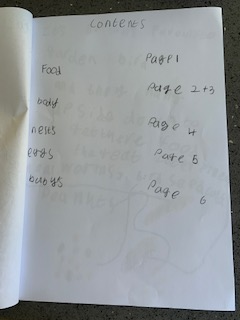 contents
Page 1
Food
Page 2+3
body
Page 4
nests
Page 5
eggs
Page 6
babys